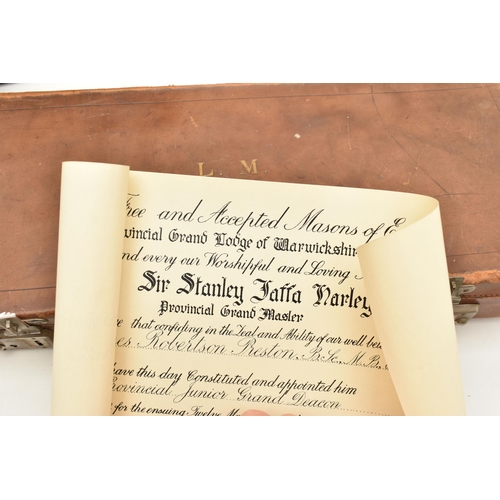 L. M
Free and Accepted Masons of E
vincial Grand Lodge of Warwickshir
nd every our Worshipful and Loving
Sir Stanley Jaffa Harley
Provincial Grand Master
that confiding in the Zeal and Ability of our well be
es Robertson Preston, B.Sc., M.B.,
have this day Constituted and appointed him
Provincial Junior Grand Deacon
for the ensuing Twelve Mo